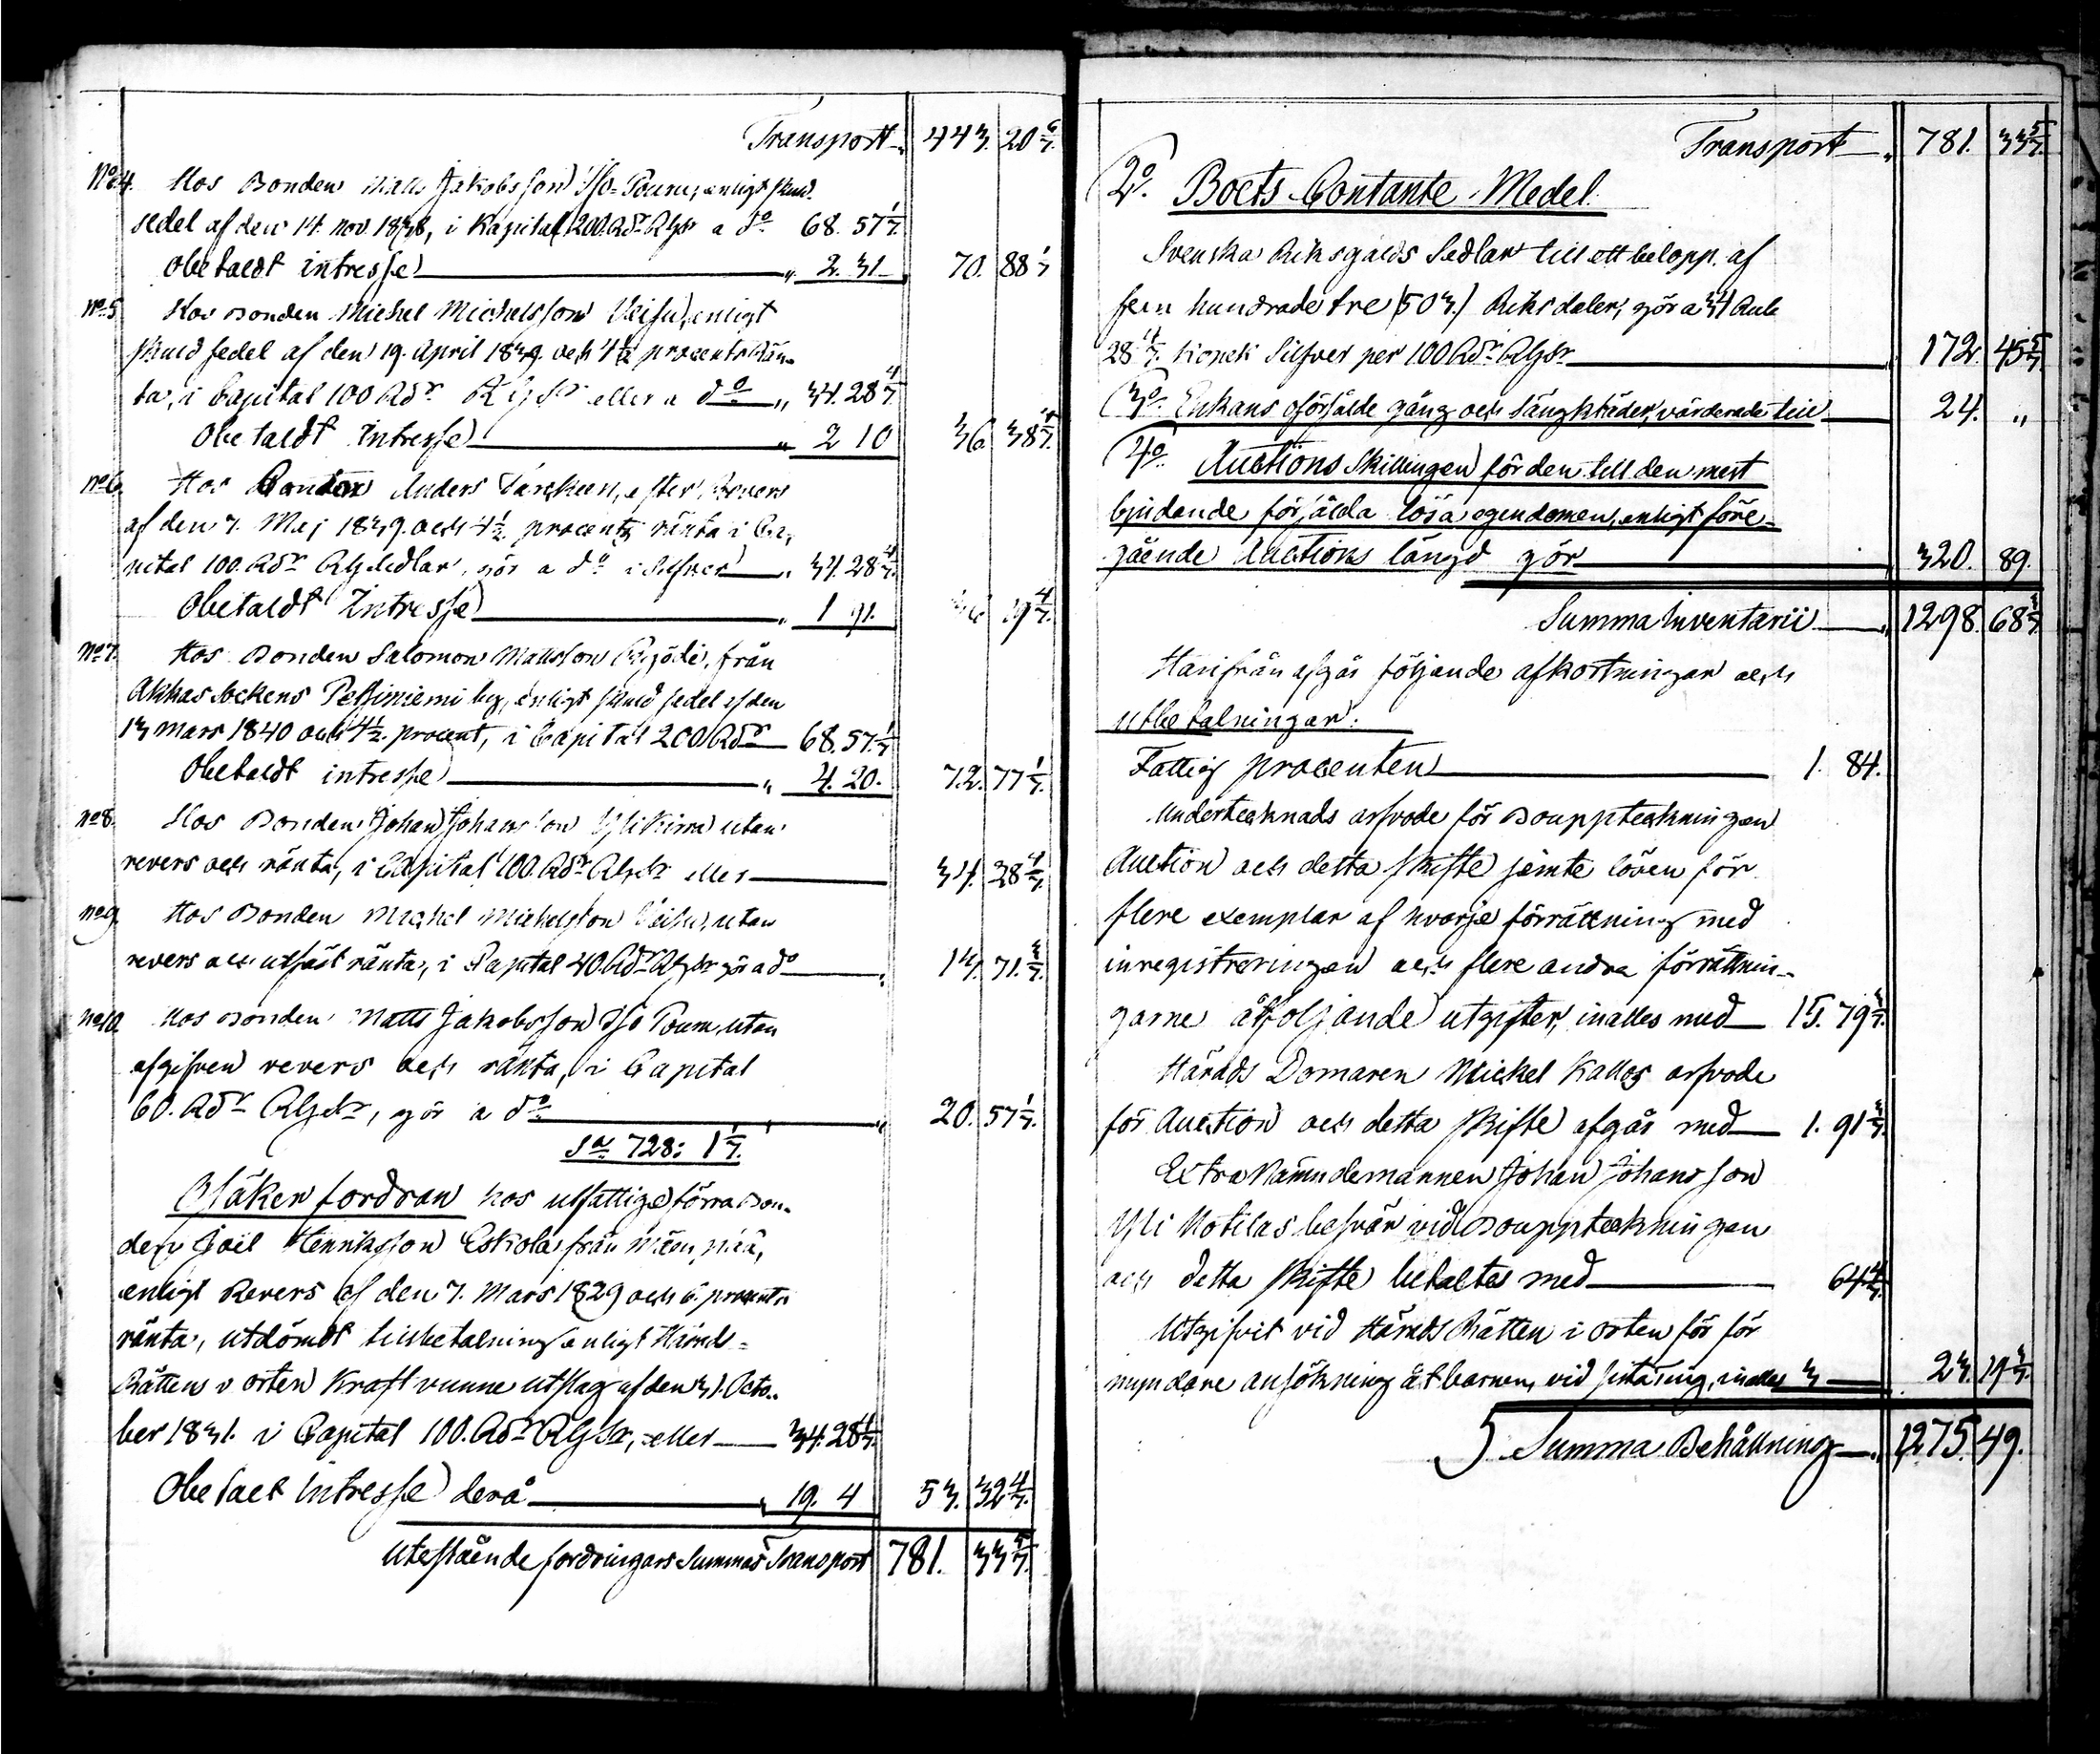 Transport 443. 20 6/7.
No 4. Hos Bonden Matts Jakobsson Iso-Poum, enligt skuld
sedel af den 14. nov. 1838, i Kapital 200. Rdr RGdr a do 68. 57 1/7.
Obetaldt intresse „ 2. 31 70. 88 1/7
No 5 Hos Bonden Michel Michelsson Veisu, enligt
skuld sedel af den 19. April 1839. och 4 1/2 procents Rän-
ta, i Capital 100 Rdr RGdr eller a do „ 34. 28 4/7.
Obetaldt Intresse „ 2 10 36 38 4/7.
No 6. Hos Bonden Anders, efter Revers
af den 7. Maj 1839. och 4 1/2. procents ränta i Ca-
pital 100. Rdr RG Sedlar, gör a do i Silfver „ 34. 28 4/7.
Obetaldt Intresse „ 1 91. 19 4/7.
No 7. Hos Bonden Salomon Mattsson, från
Akkas Sockens by, enligt skuld sedel af den
13 mars 1840 och 4 1/2. procent, i Capital 200 Rdr 68. 57. 1/7
Obetaldt intresse „ 4. 20. 72. 77 1/7.
No 8. Hos Bonden Johan Johansson utan
revers och ränta, i Capital 100. Rdr RGdr eller 34. 28 4/7.
No 9. Hos Bonden Michel Michelsson Veisu, utan
revers och utfäst ränta, i Capital 40. Rdr RGdr gör a do 13. 71. 3/7.
No 10. Hos Bonden Matts Jakobsson Iso Poum, utan
afgifven revers och ränta, i Capital
60. Rdr RGdr, gör a do „ 20. 57 1/7.
Sa 728: 1 1/7.
Osäker fordran hos utfattige förra Bon-
den Joël Henriksson Eskola från
enligt Revers af den 7. Mars 1829 och 6. procents
ränta, utdömdt till betalning enligt Härads-
Rätten i orten Kraftvunne utslag af den 31. Octo-
ber 1831. i Capital 100. Rdr RGdr, eller 34. 28 4/7.
Obetaet Intresse derå 19. 4 53. 32 4/7.
Utestående fordringars Summa Transport 781. 33 5/7.
Transport „ 781. 33 5/7.
2o. Boets Contante Medel.
Svenska Riksgälds Sedlar till ett belopp af
fem hundrade tre (503.) Riksdaler, gör a 34 Rub
28 4/7. Kopek Silfver per 100 Rdr RGdr 172. 45 5/7
3o. Enkans oförsålde gång och sängkläder, värderade till 24. „
4o. Auctions Skillingen för den till den mest
bjudande försålda lösa egendomen, enligt före-
gående Auctions längd gör 320. 89.
Summa Inventarii „ 1298. 68 3/7.
Härifrån afgår följande afkortningar och
utbetalningar:
Fattig procenten 1. 84.
Undertecknads arfvode för Bouppteckningen
Auction och detta skifte jemte lösen för
flere exemplar af hvarje förrättning med
inregistreringen och flere andra förrättnin-
garne åtföljande utgifter, inalles med 15. 79 3/7.
Härads Domaren Mickel Kallos arfvode
för Auction och detta skifte afgår med 1. 91 3/7.
Extra Nämndemannen Johan Johansson
Yli Kotilas besvär vid Bouppteckningen
och detta skifte betaltes med 64 4/7.
Utgifvit vid Härads Rätten i orten för för
myndare ansökning åt barnen, vid sista ting, inalles 3 23. 19 3/7.
Summa Behållning „ 1275. 49.